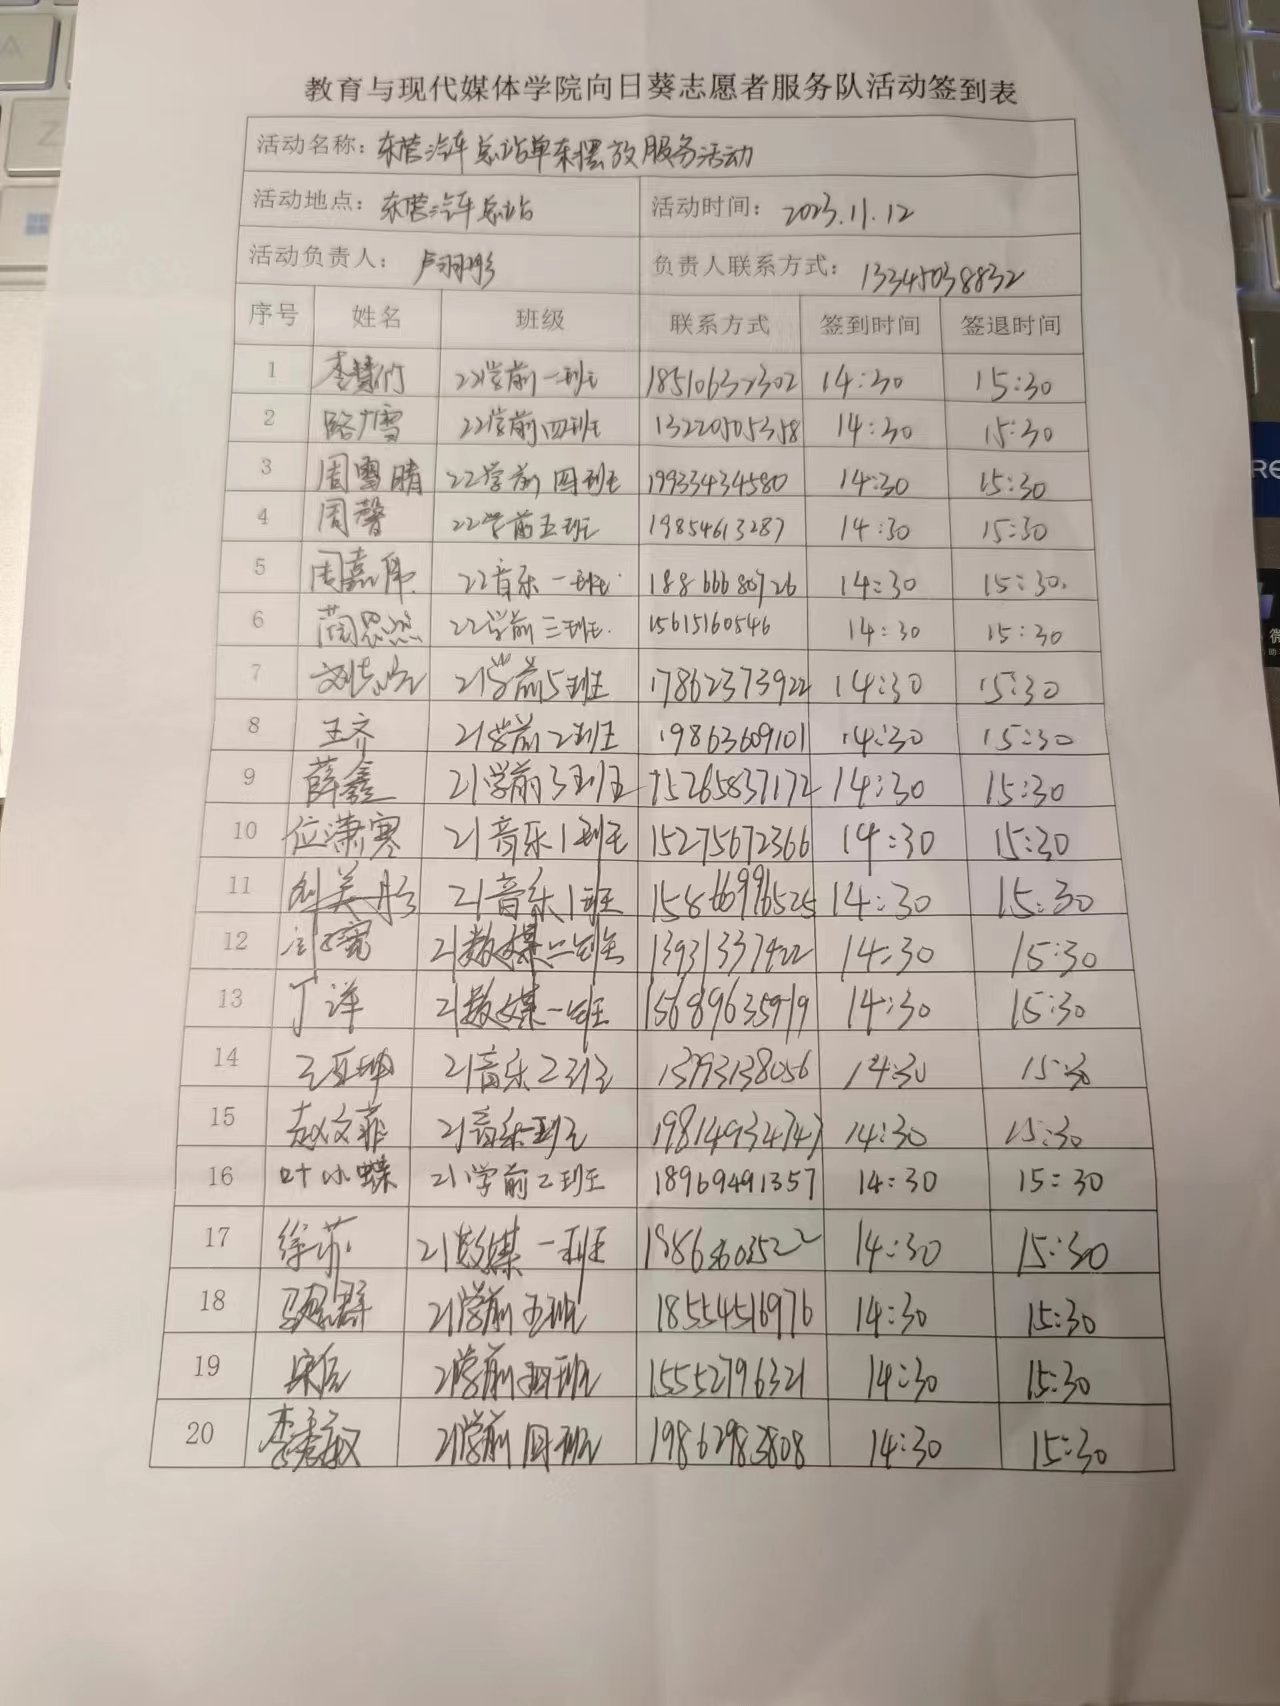 教育与现代媒体学院向日葵志愿者服务队活动签到表
活动名称：东营汽车总站单车摆放服务活动
活动地点：东营汽车总站 活动时间：2023.11.12
活动负责人：卢羽彤 负责人联系方式：13345038832
序号 姓名 班级 联系方式 签到时间 签退时间
1 李慧们 22学前一班 18510637302 14:30 15:30
2 路雪 22学前四班 13220505358 14:30 15:30
3 周雪晴 22学前四班 19933434580 14:30 15:30
4 周馨 22学前五班 19854613287 14:30 15:30
5 周嘉伟 22音乐一班 18866680726 14:30 15:30
6 蔺思悠 22学前三班 15615160546 14:30 15:30
7 21学前5班 17862373922 14:30 15:30
8 王齐 21学前2班 19863609101 14:30 15:30
9 薛鑫 21学前3班 15265837172 14:30 15:30
10 位潇寒 21音乐1班 15275672366 14:30 15:30
11 刘美彤 21音乐1班 15866996525 14:30 15:30
12 21数媒二班 13931337422 14:30 15:30
13 丁洋 21数媒一班 15689635919 14:30 15:30
14 王亚坤 21音乐2班 13793138056 14:30 15:30
15 赵文菲 21音乐一班 19814934747 14:30 15:30
16 叶小蝶 21学前2班 18969491357 14:30 15:30
17 徐菲 21数媒一班 14:30 15:30
18 21学前五班 18554516976 14:30 15:30
19 21学前四班 15552796321 14:30 15:30
20 李秀敏 21学前四班 19862983808 14:30 15:30